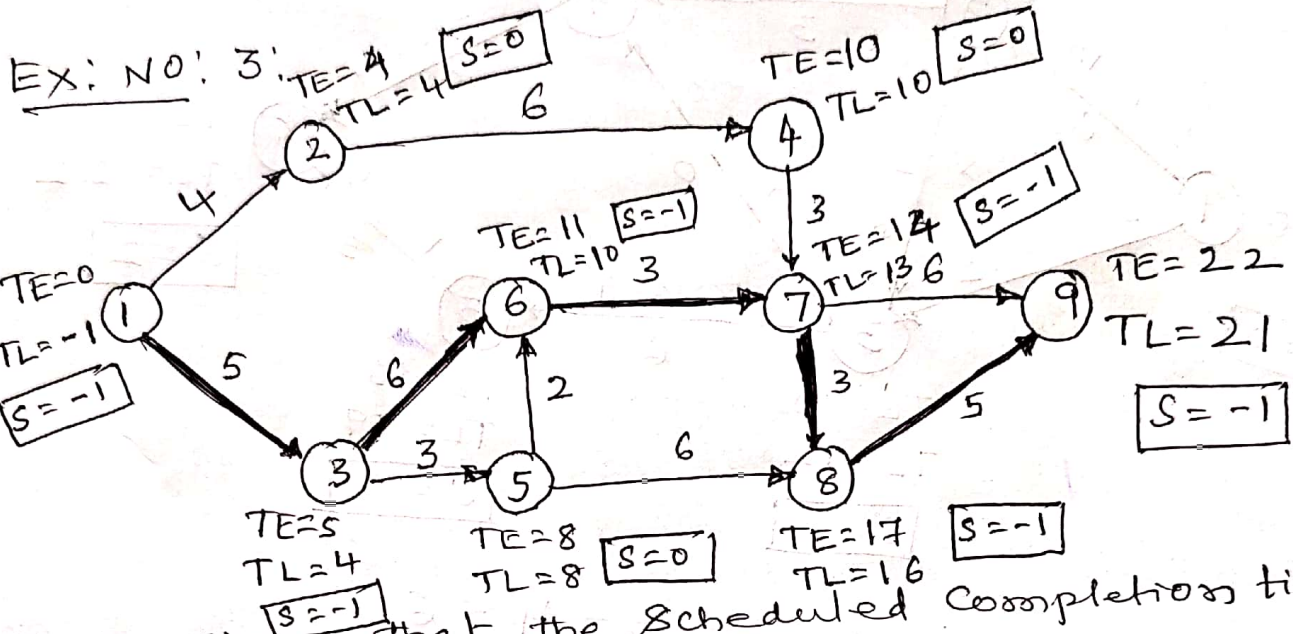 EX: NO: 3:
TE=4
TL=4
S=0
6
TE=10
TL=10
S=0
2
4
4
3
TE=11
TL=10
S=-1
3
TE=14
TL=13
S=-1
6
TE=0
TL=-1
S=-1
1
6
7
9
TE=22
TL=21
S=-1
5
6
2
3
5
3
3
5
6
8
TE=5
TL=4
S=-1
TE=8
TL=8
S=0
TE=17
TL=16
S=-1
that the Scheduled Completion ti